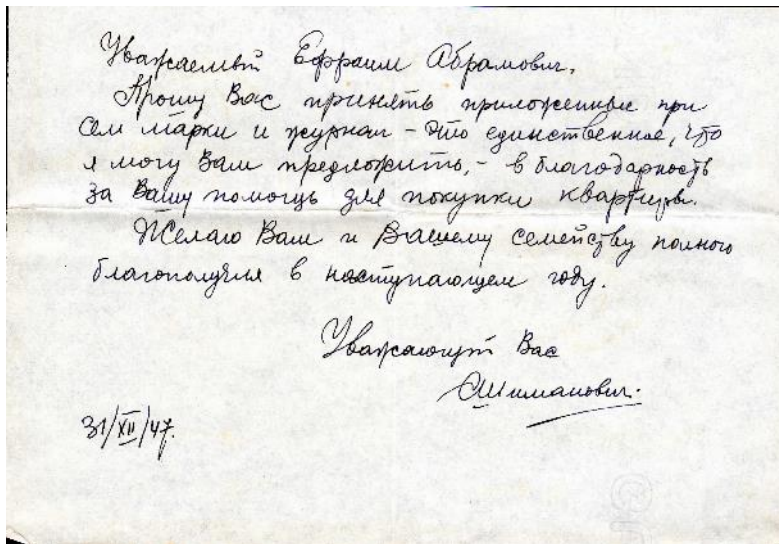 Уважаемый Ефраим Абрамович.
Прошу Вас принять приложенные при
сем марки и журнал – это единственное, что
я могу Вам предложить, – в благодарность
за Вашу помощь для покупки квартиры.
Желаю Вам и Вашему семейству полного
благополучия в наступающем году.
Уважающий Вас
Шиманович.
31/XII/47.